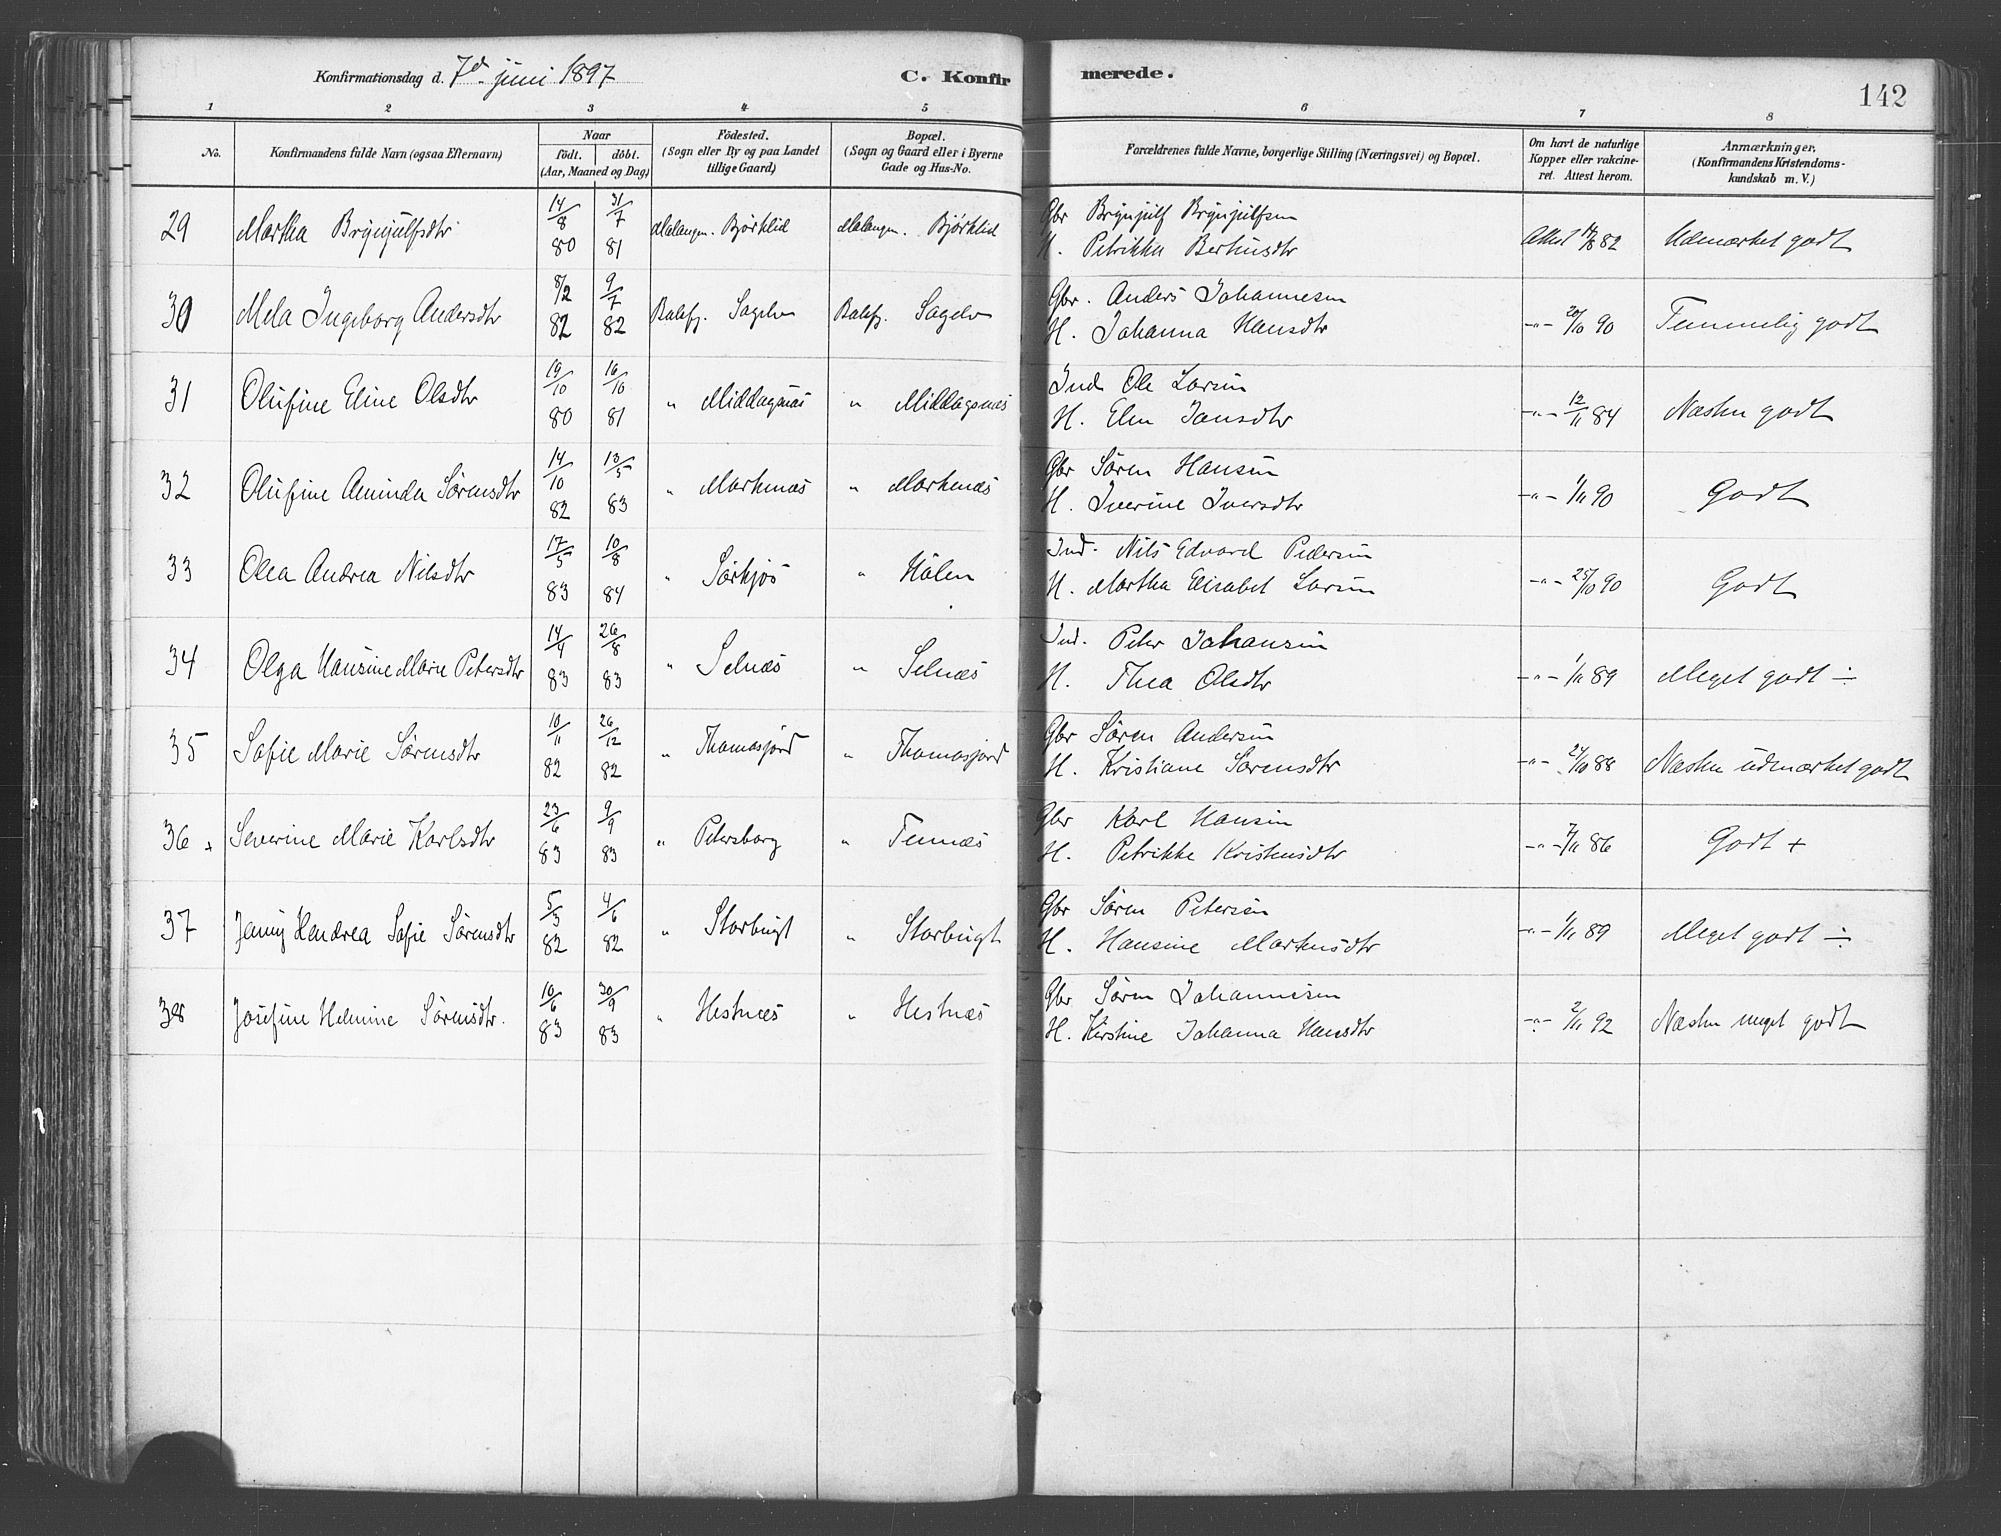 Konfirmationsdag d. 7d juni 1897 C. Konfirmerede. 142
1 2 3 4 5 6 7 8
No.
Konfirmandens fulde Navn (ogsaa Efternavn)
Naar
födt. döbt.
(Aar, Maaned og Dag)
Födested.
(Sogn eller By og paa Landet
tillige Gaard)
Bopæl.
(Sogn og Gaard eller i Byerne
Gade og Hus-No.
Forældrenes fulde Navne, borgerlige Stilling (Næringsvei) og Bopæl.
Om havt de naturlige
Kopper eller vakcine-
ret. Attest herom.
Anmærkninger.
(Konfirmandens Kristendoms-
kundskab m. V.)
29 Martha Brynjulfsdtr 14/8 80 31/7 81 Malangen. Bjørklid Malangen. Bjørklid
Gbr Brynjulf Brynjulfsen
H. Petrikka Berthusdtr
Attest 82 Udmærket godt
30 Mela Ingeborg Andersdtr 8/2 82 9/7 82 Balsfj. Sagelv Balsfj. Sagelv
Gbr. Anders Johannesen
H. Johanna Hansdtr
-"- 20/10 90 Temmelig godt
31 Olufine Eline Olsdtr 19/10 80 16/10 81 " Middagsnæs " Middagsnæs
Ind Ole Larsen
H. Elen Jansdtr
-"- 12/11 84 Næsten godt
32 Olufine Aminda Sørensdtr 14/10 82 13/5 83 " Markenæs " Markenæs
Gbr Søren Hansen
H. Iverine Iversdtr
-"- 1/11 90 Godt
33 Olea Andrea Nilsdtr 17/5 83 10/8 84 " Sørkjos " Hølen
Ind. Nils Edvard Pedersen
H. Martha Elisabet Larsen
-"- 25/10 90 Godt
34 Olga Hansine Marie Petersdtr 14/4 83 26/8 83 " Selnæs " Selnæs
Ind. Peter Johansen
H. Thea Olsdtr
-"- 1/11 89 Meget godt ÷
35 Sofie Marie Sørensdtr 10/11 82 26/12 82 " Thomasjord " Thomasjord
Gbr Søren Andersen
H. Kristiane Sørensdtr
-"- 27/10 88 Næsten udmærket godt
36 + Severine Marie Karlsdtr 23/6 83 9/9 83 " Petersborg " Tennæs
Gbr Karl Hansen
H. Petrikke Kristensdtr
-"- 7/11 86 Godt +
37 Jenny Hendrea Sofie Sørensdtr 5/3 82 4/6 82 " Storbugt " Storbugt
Gbr Søren Petersen
H. Hansine Markusdtr
-"- 1/11 89 Meget godt ÷
38 Josefine Helmine Sørensdtr. 16/6 83 30/9 83 " Hestnæs " Hestnæs
Gbr Søren Johannesen
H. Kirstine Johanna Hansdtr
-"- 2/11 92 Næsten meget godt